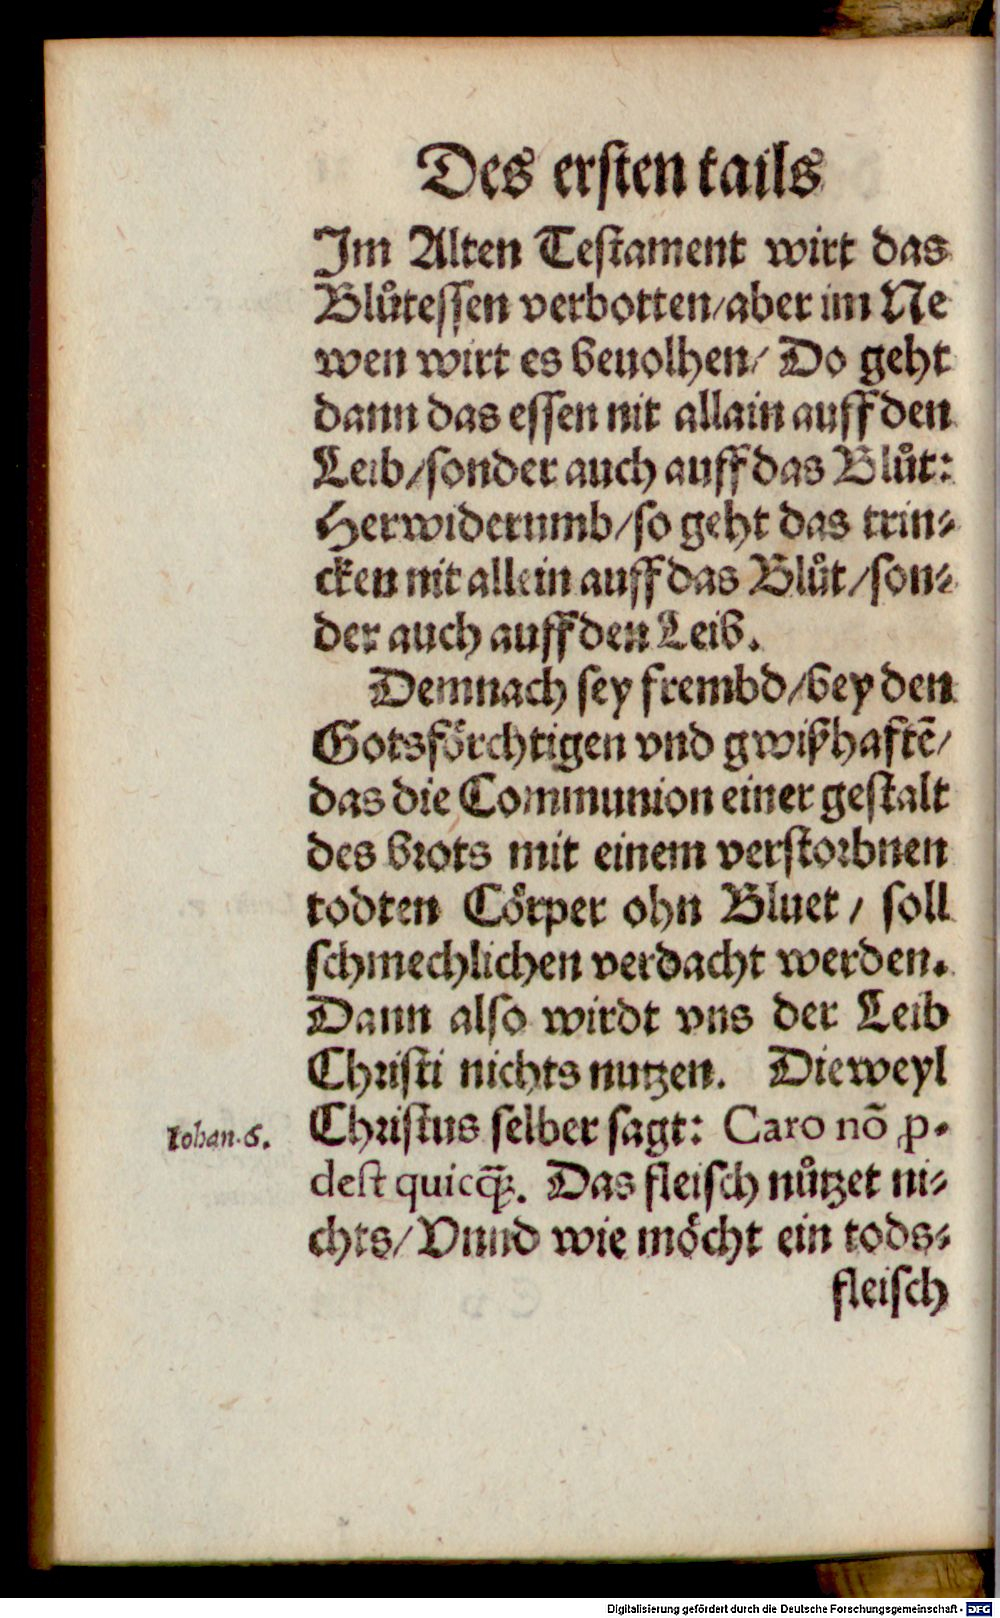 Des ersten tails
Im Alten Testament wirt das
Blůtessen verbotten/aber im Ne
wen wirt es beuolhen/ Do geht
dann das essen nit allain auff den
Leib/sonder auch auff das Blůt:
Herwiderumb/so geht das trin-
cken nit allein auff das Blůt/son-
der auch auff den Leib.
Demnach sey frembd/bey den
Gotsförchtigen vnd gwißhaftē/
das die Communion einer gestalt
des brots mit einem verstorbnen
todten Cörper ohn Bluet/ soll
schmechlichen verdacht werden.
Dann also wirdt vns der Leib
Christi nichts nutzen. Dieweyl
Christus selber sagt: Caro nō ꝓ-
Iohan.6.
dest quicq̄ꝫ. Das fleisch nůtzet ni-
chts/Vnnd wie möcht ein tods-
fleisch
Digitalisierung gefördert durch die Deutsche Forschungsgemeinschaft - DFG